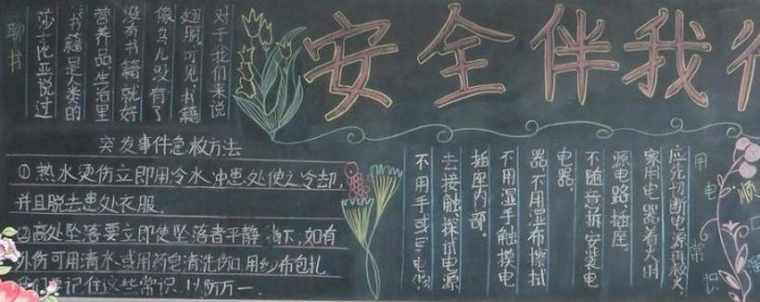 安全伴我
聊书
莎士比亚说过
书籍是人类的
营养品生活里
没有书籍就好
像鸟儿没有了
翅膀可见书籍
对于我们来说
突发事件急救方法
①热水烫伤立即用冷水冲患处使之冷却,
并且脱去患处衣服。
②高处坠落要立即使坠落者平静下,如有
外伤可用清水或用药皂清洗伤口用纱布包扎
记住这些常识,以防万一。
不用手或导电物
去接触探试电源
插座内部。
不用湿手触摸电
器不用湿布擦拭
电器。
不随意拆安装电
源电路插座。
家用电器着火时
应先切断电源再救火
用电常识